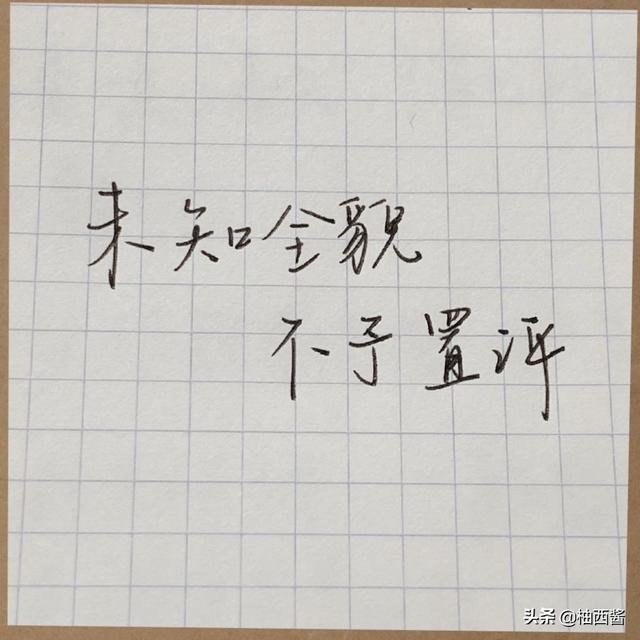 未知全貌
不予置评
头条 @柚西酱